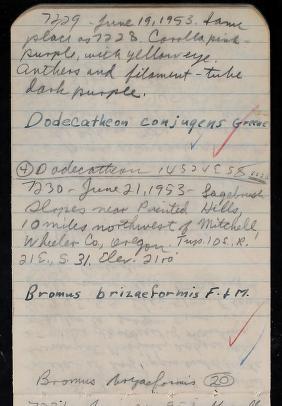 7229 - June 19, 1953. Same
place as 7228. Corolla pink-
purple, with yellow eye.
Anthers and filament-tube
dark purple.
Dodecatheon conjugens Greene
④ Dodecatheon
7230 - June 21, 1953 - Sagebrush
slopes near Painted Hills,
10 miles northwest of Mitchell,
Wheeler Co, Oregon. Twp. 10 S. R.
21 E., S. 31. Elev. 2100'
Bromus brizaeformis F. & M.
Bromus brizaeformis ⑳